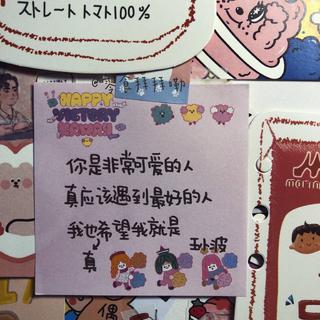 ストレート トマト100%
食拜拜勒
HAPPY
VICTORY
你是非常可爱的人
真应该遇到最好的人
我也希望我就是
真
偶